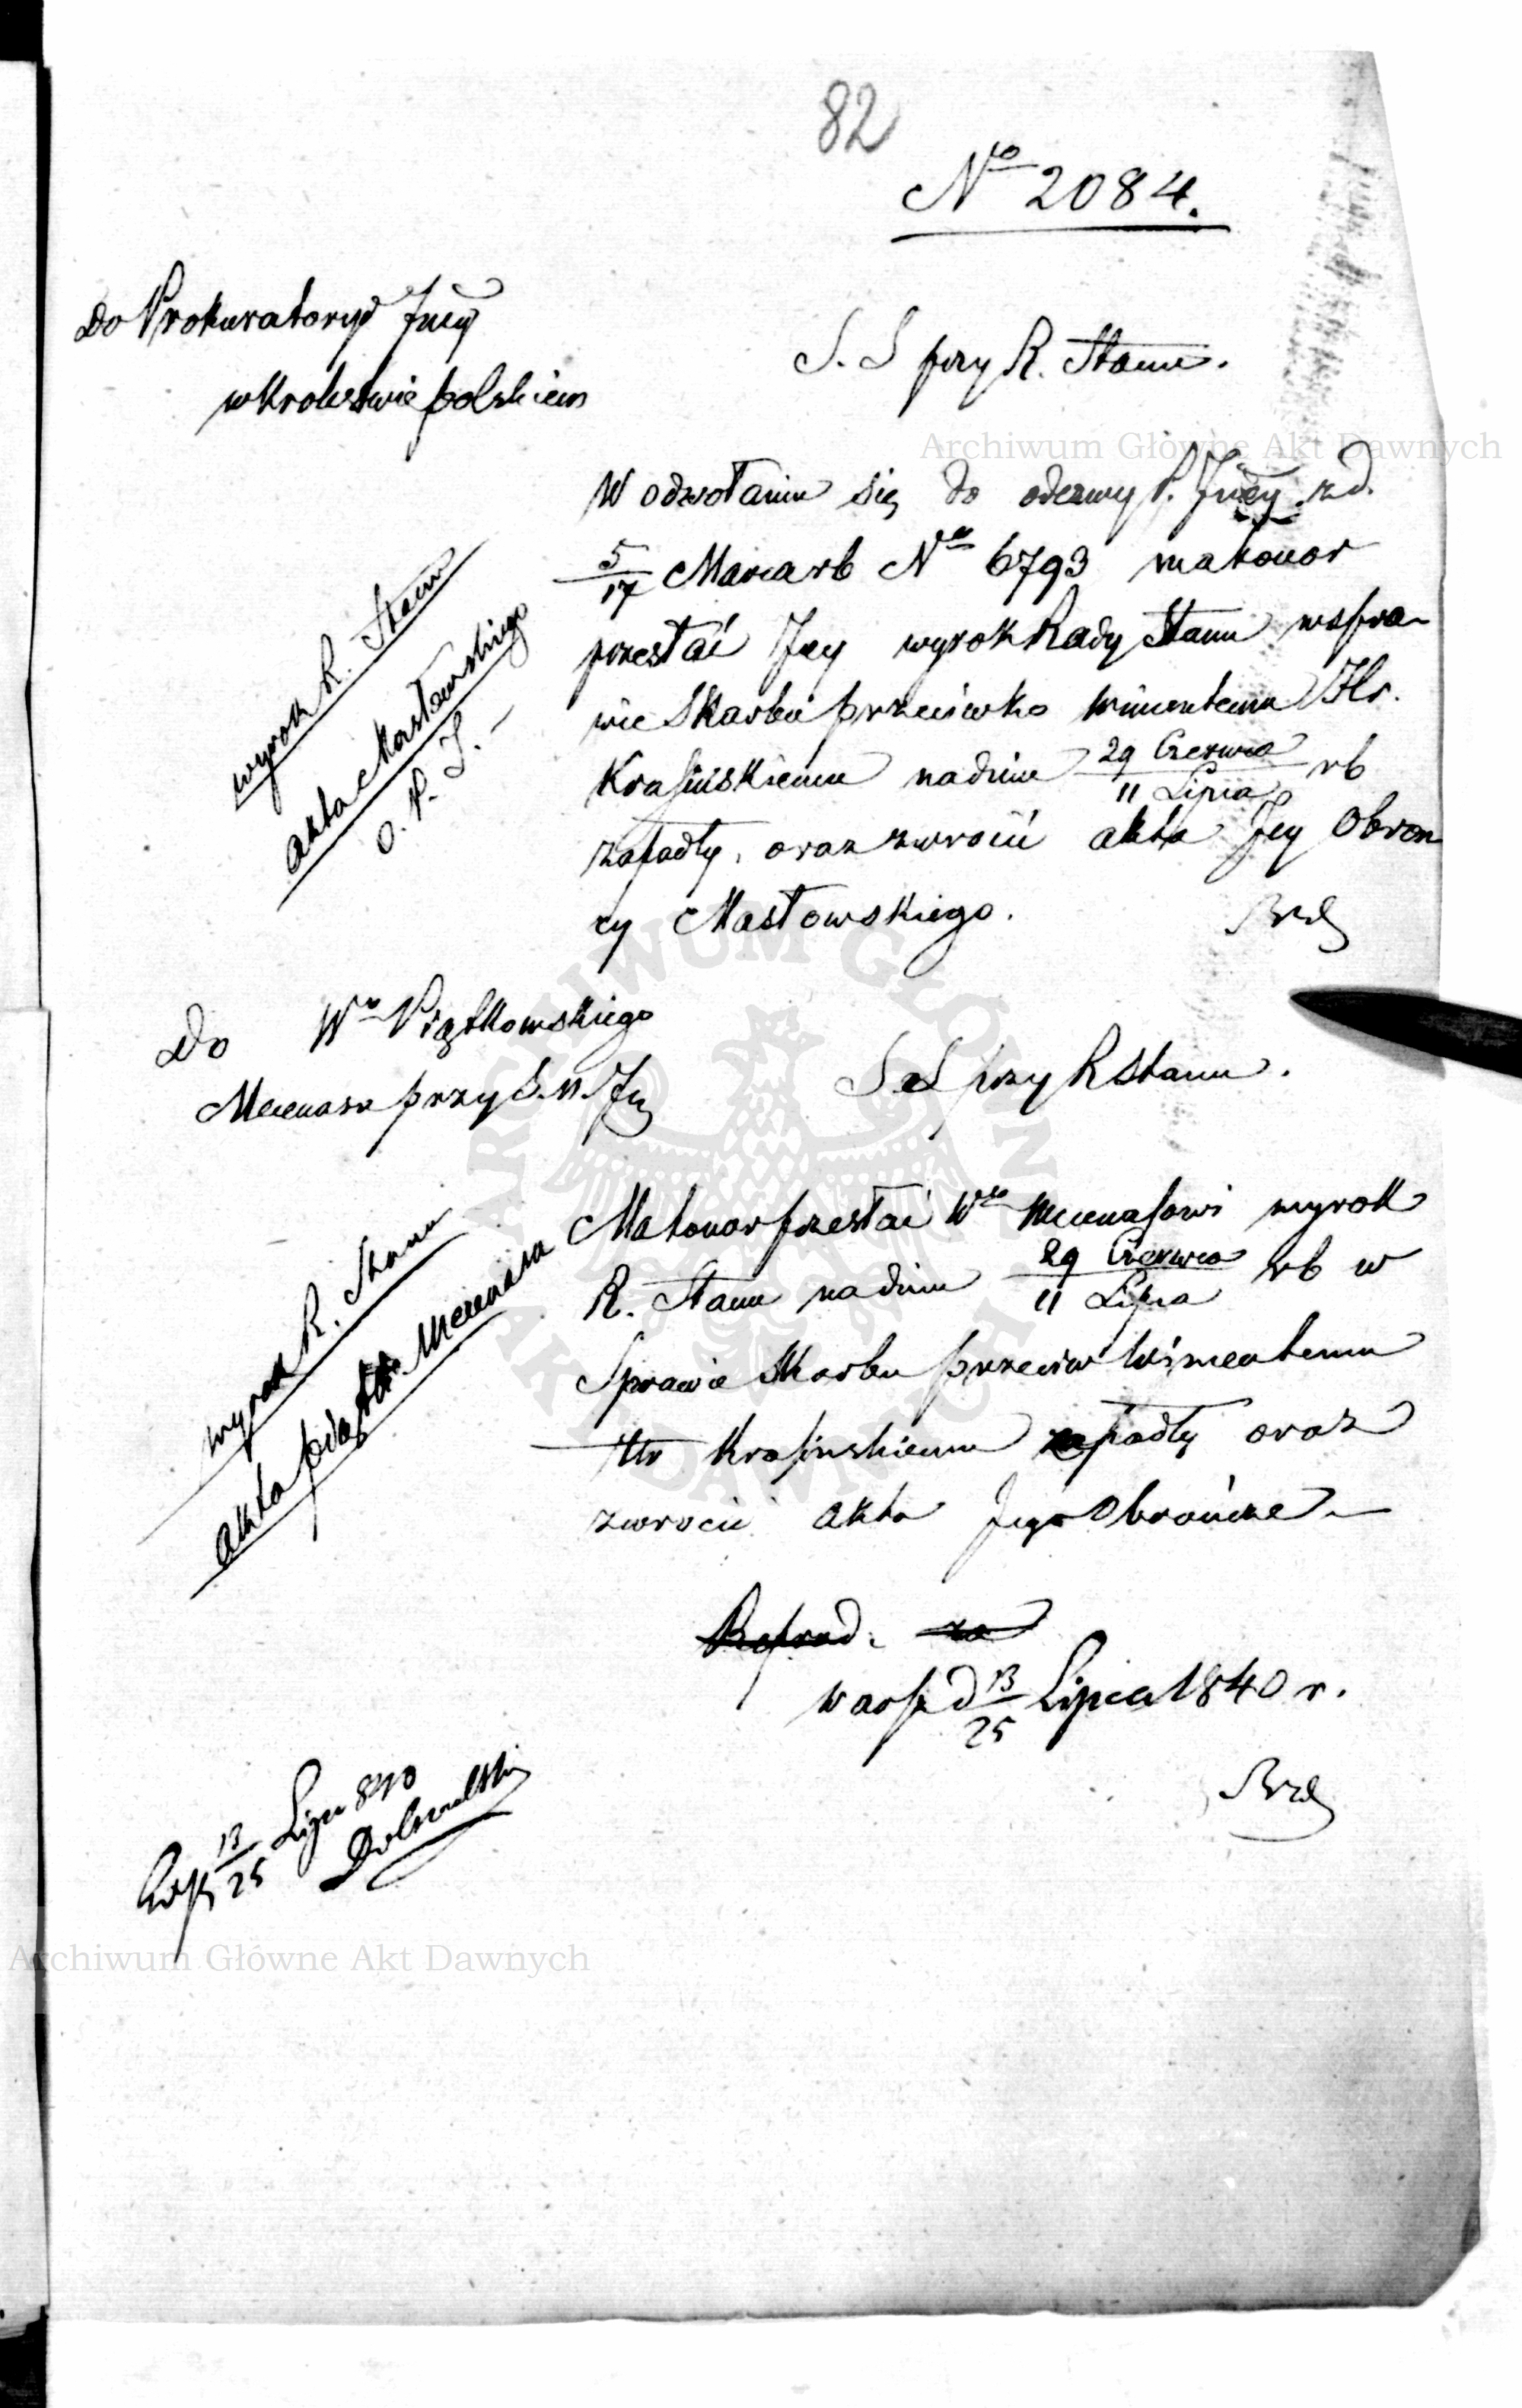 82
No 2084.
Do Prokuratoryi Jney
w Krolestwie polskiem
S. S przy R. Stanu.
W odwołaniu się do odezwy P. Jney z d.
5/17 Marca rb No 6793 ma honor
przesłać Jey wyrok Rady Stanu w spra-
wie Skarbu przeciwko Wincentemu Hr.
Krasińskiemu na dniu 29 Czerwca / 11 Lipca rb
zapadły, oraz zwrócić akta Jey Obroń
cy Masłowskiego.
wyrok R. Stanu
akta Masłowskiego
O. P. J. -
Do Wo Piątkowskiego
Mecenasa przy S. N. Jn
S. S przy R Stanu.
Ma honor przesłać Wo Mecenasowi wyrok
R. Stanu na dniu 29 Czerwca / 11 Lipca rb w
Sprawie Skarbu przeciw Wincentemu
Hr Krasinskiemu zapadły oraz
zwrócić akta Jego Obrończe -
wyrok R. Stanu
akta Mecenasa
za
w Warsz d 13/25 Lipca 1840 r.
13/25 Lipca 840
Archiwum Główne Akt Dawnych
ARCHIWUM GŁÓWNE AKT DAWNYCH
Archiwum Główne Akt Dawnych